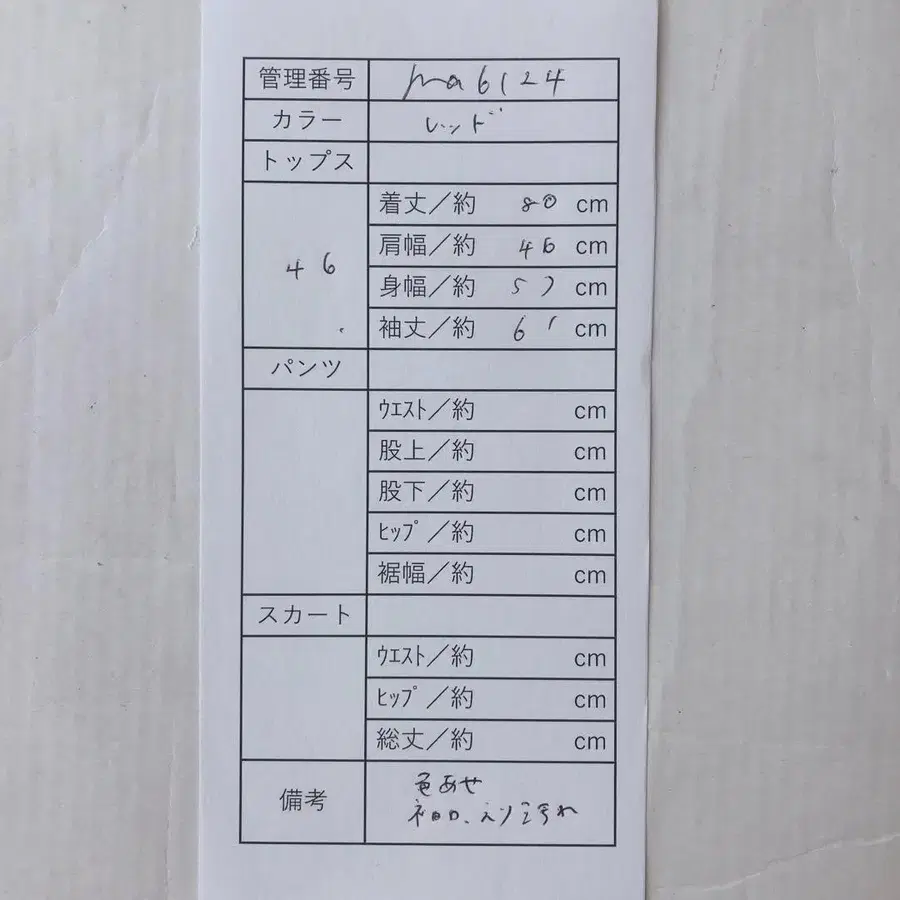 管理番号 ma6124
カラー レッド
トップス
46
着丈／約 80 cm
肩幅／約 46 cm
身幅／約 57 cm
袖丈／約 61 cm
パンツ
ｳｴｽﾄ／約 cm
股上／約 cm
股下／約 cm
ﾋｯﾌﾟ／約 cm
裾幅／約 cm
スカート
ｳｴｽﾄ／約 cm
ﾋｯﾌﾟ／約 cm
総丈／約 cm
備考 色あせ
袖口、えり汚れ